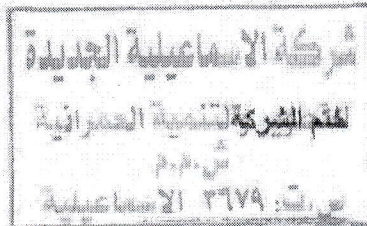 شركة الاسماعيلية الجديدة
لختم الشركة لتنمية العمرانية
ش.م.م
س.ت: ٣٦٧٩ الاسماعيلية